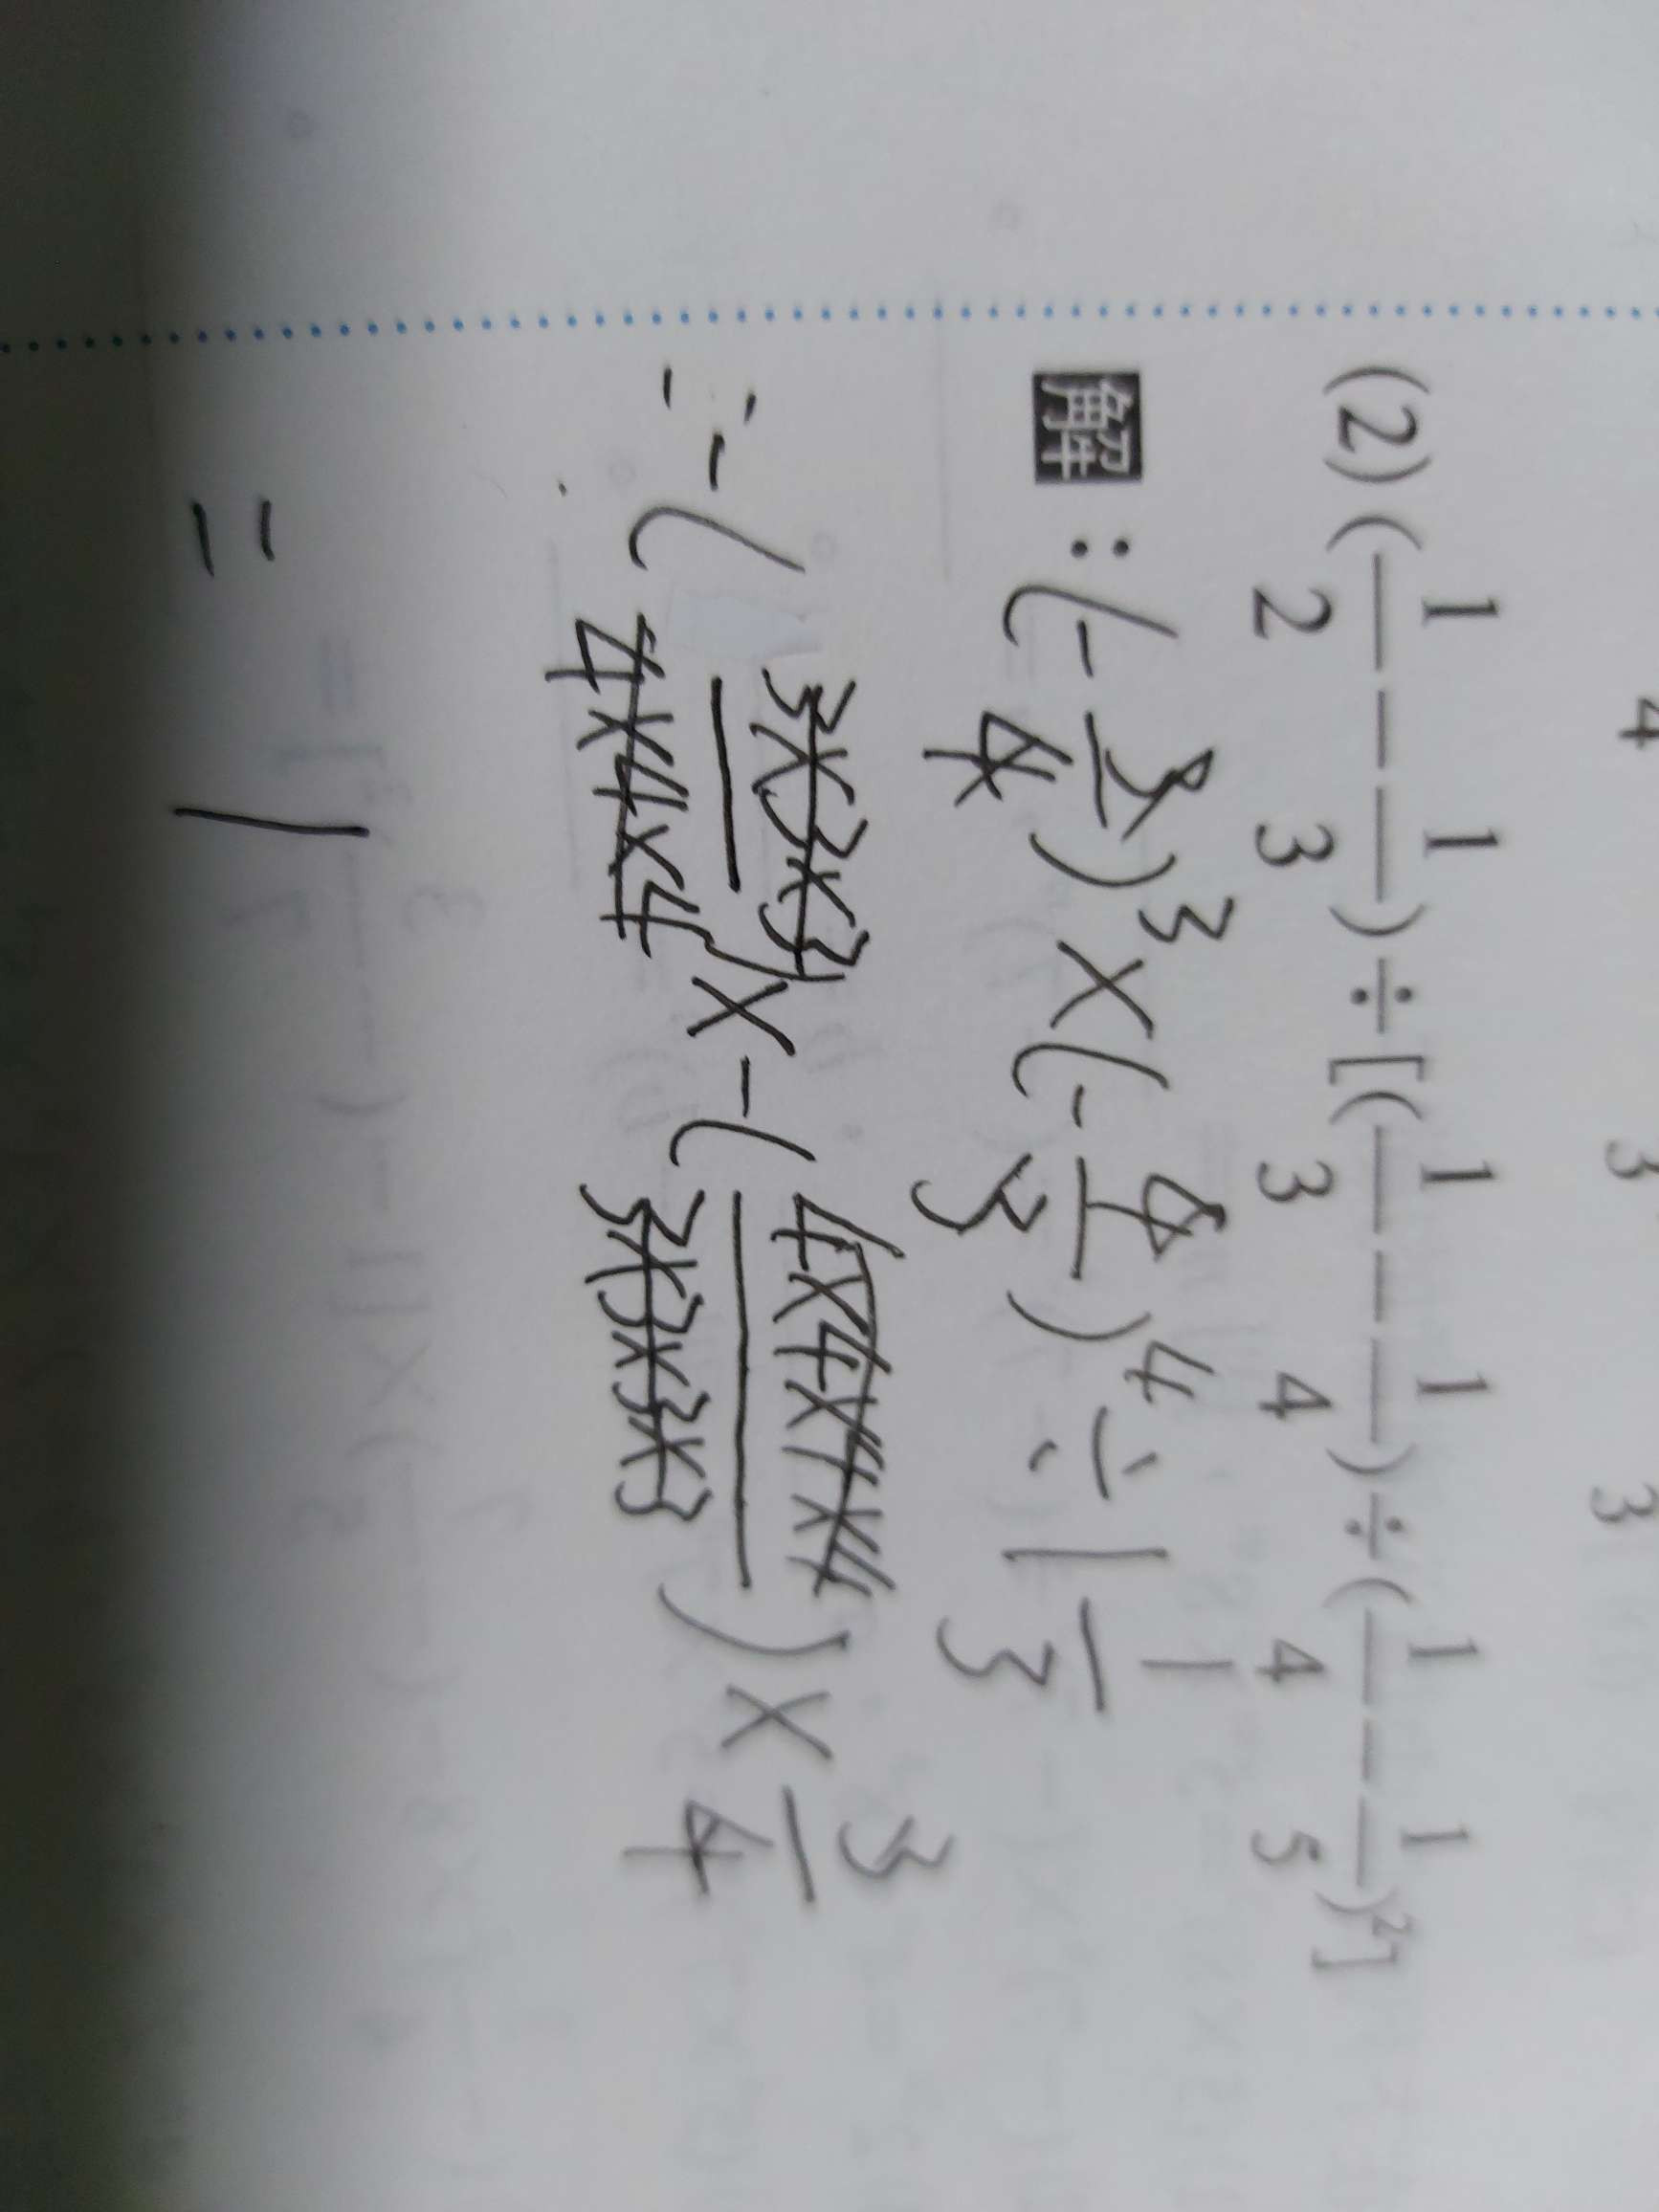 4 3 3
(2) (1/2 - 1/3) ÷ [(1/3 - 1/4) ÷ (1/4 - 1/5)²]
解 : (-3/4)³ × (-4/3)⁴ ÷ 1 1/3
= -(3×3×3/4×4×4) × -(4×4×4×4/3×3×3×3) × 3/4
= 1